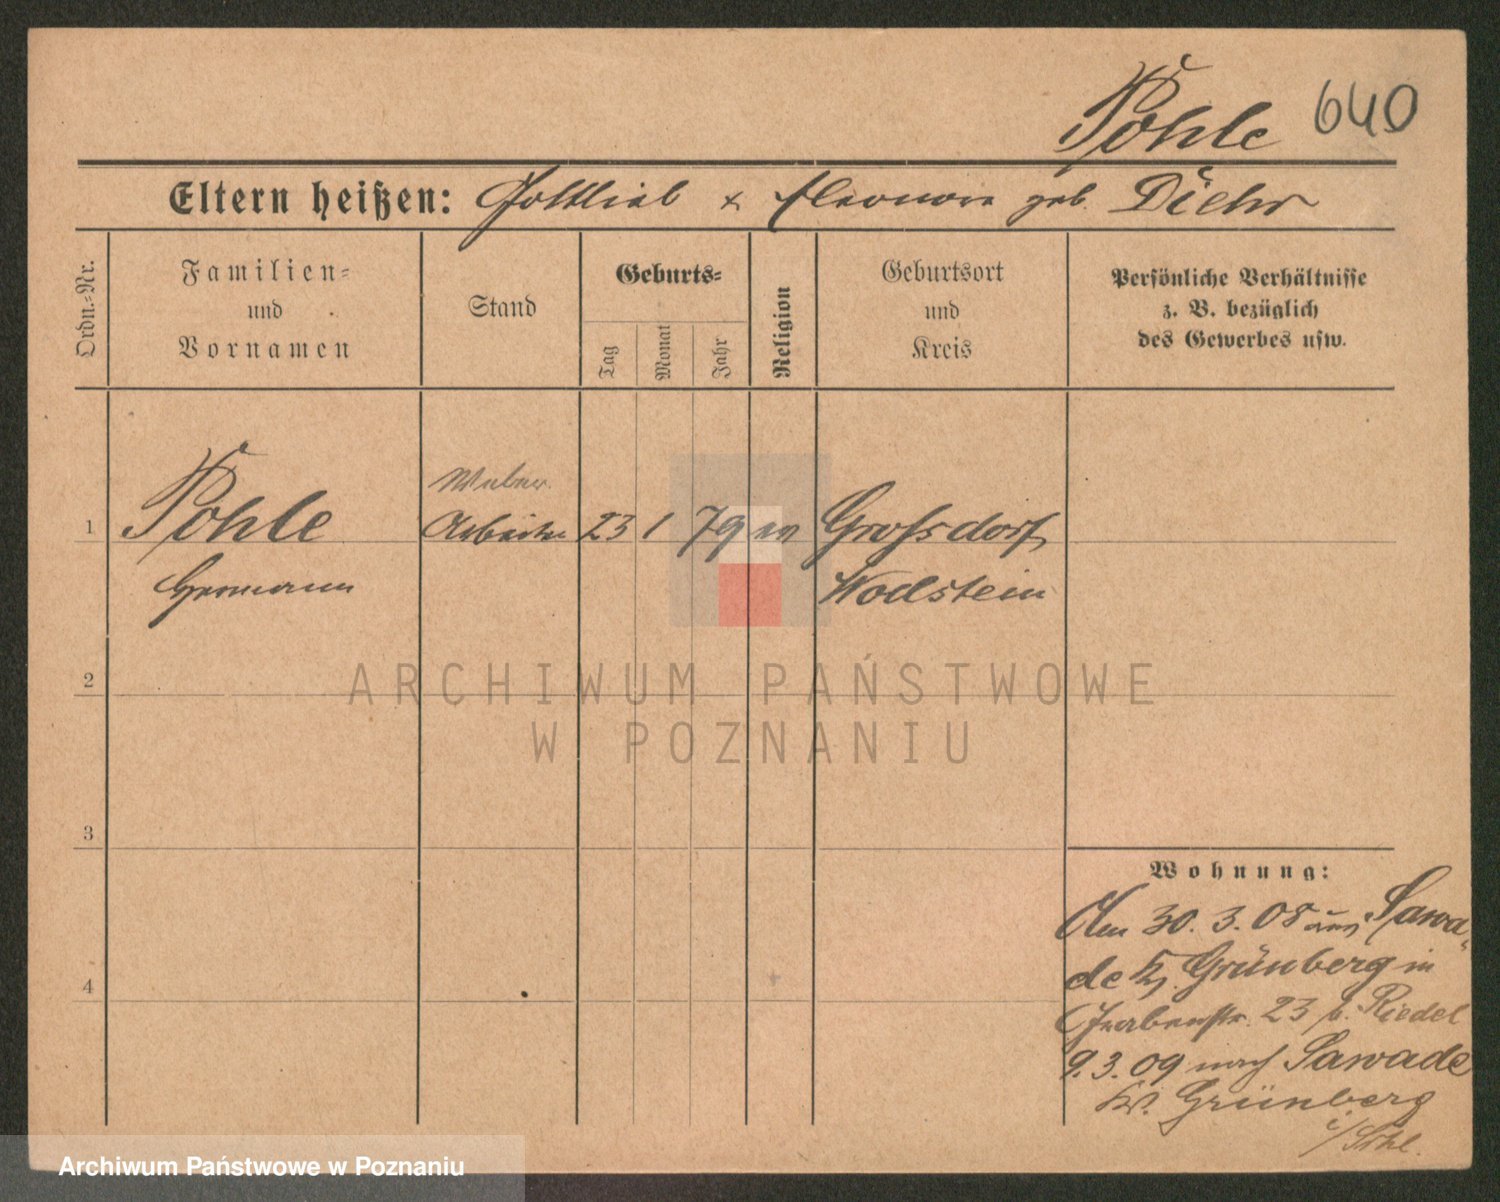 Pohle 640
Eltern heißen: Gottlieb & Eleonore geb. Diehr
Ordn.-Nr.
Familien-
und
Vornamen
Stand
Geburts-
Tag
Monat
Jahr
Religion
Geburtsort
und
Kreis
Persönliche Verhältnisse
z. B. bezüglich
des Gewerbes usw.
Weber
1 Pohle Arbeiter 23 1 79 ev Grofsdorf
Hermann Wodstein
2
ARCHIWUM PAŃSTWOWE
W POZNANIU
3
Wohnung:
Am 30. 3. 08 aus Sawa-
de Kr. Grünberg in
4
Grabenstr. 23 b. Riedel
9. 3. 09 nach Sawade
Kr. Grünberg
i/Schl.
Archiwum Państwowe w Poznaniu